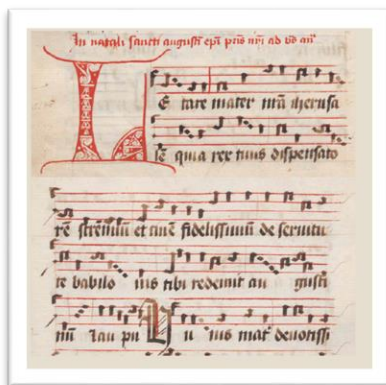 In natali sancti augusti epi pris nri ad vs an
L E tare mater nra iherusa
lē quia rex tuus dispensato
rē strēnuū et civē fidelissimū de servitu
te babilo nis tibi redemit au gusti
nū Lau pu H u ius mat devotissi